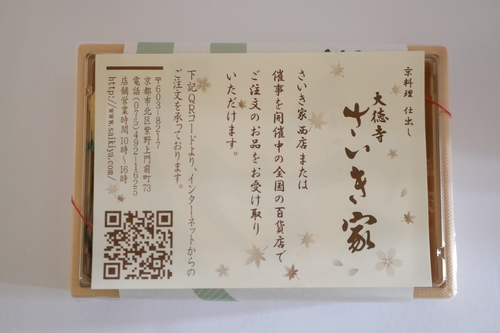 京料理 仕出し
大徳寺
さいき家
さいき家 西店または
催事を開催中の全国の百貨店で
ご注文のお品をお受け取り
いただけます。
下記QRコードより、インターネットからの
ご注文を承っております。
〒603-8217
京都市北区紫野上門前町73
電話(075)492-1625
店舗営業時間10時〜16時
http://www.saikiya.com/